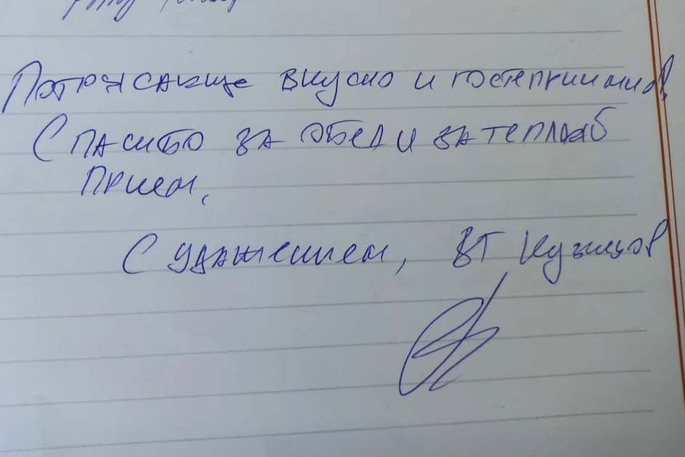 Потрясающе вкусно и гостеприимно!
Спасибо за обед и за теплый
прием,
С уважением, ВТ Кузнецов